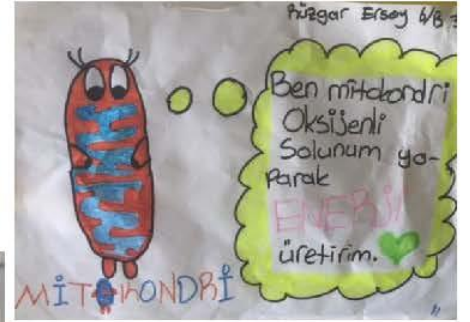 Rüzgar Ersoy 6/B
Ben mitokondri
Oksijenli
Solunum ya-
Parak
ENERJİ
üretirim.
MİTOKONDRİ